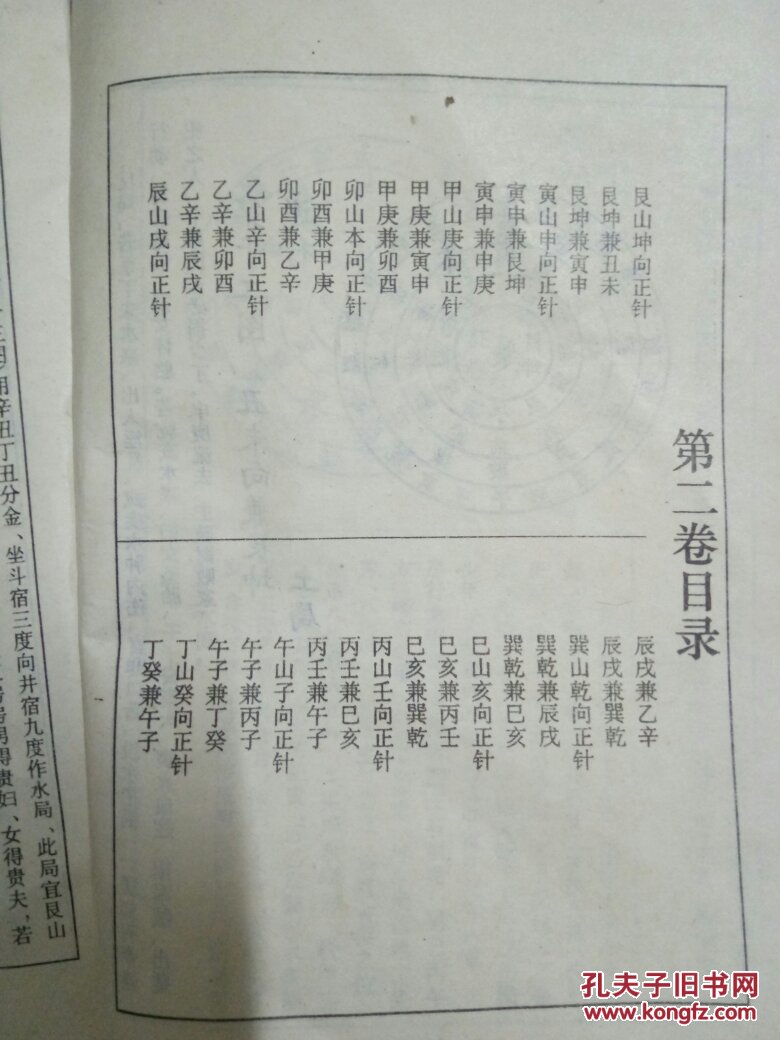 第二卷目录
艮山坤向正针
艮坤兼丑未
艮坤兼寅申
寅山申向正针
寅申兼艮坤
寅申兼申庚
甲山庚向正针
甲庚兼寅申
甲庚兼卯酉
卯山本向正针
卯酉兼甲庚
卯酉兼乙辛
乙山辛向正针
乙辛兼卯酉
乙辛兼辰戌
辰山戌向正针
辰戌兼乙辛
辰戌兼巽乾
巽山乾向正针
巽乾兼辰戌
巽乾兼巳亥
巳山亥向正针
巳亥兼丙壬
巳亥兼巽乾
丙山壬向正针
丙壬兼巳亥
丙壬兼午子
午山子向正针
午子兼丙子
午子兼丁癸
丁山癸向正针
丁癸兼午子
用辛丑丁丑分金、坐斗宿三度向井宿九度作水局、此局宜艮山
男得贵妇、女得贵夫，若
孔夫子旧书网
www.kongfz.com